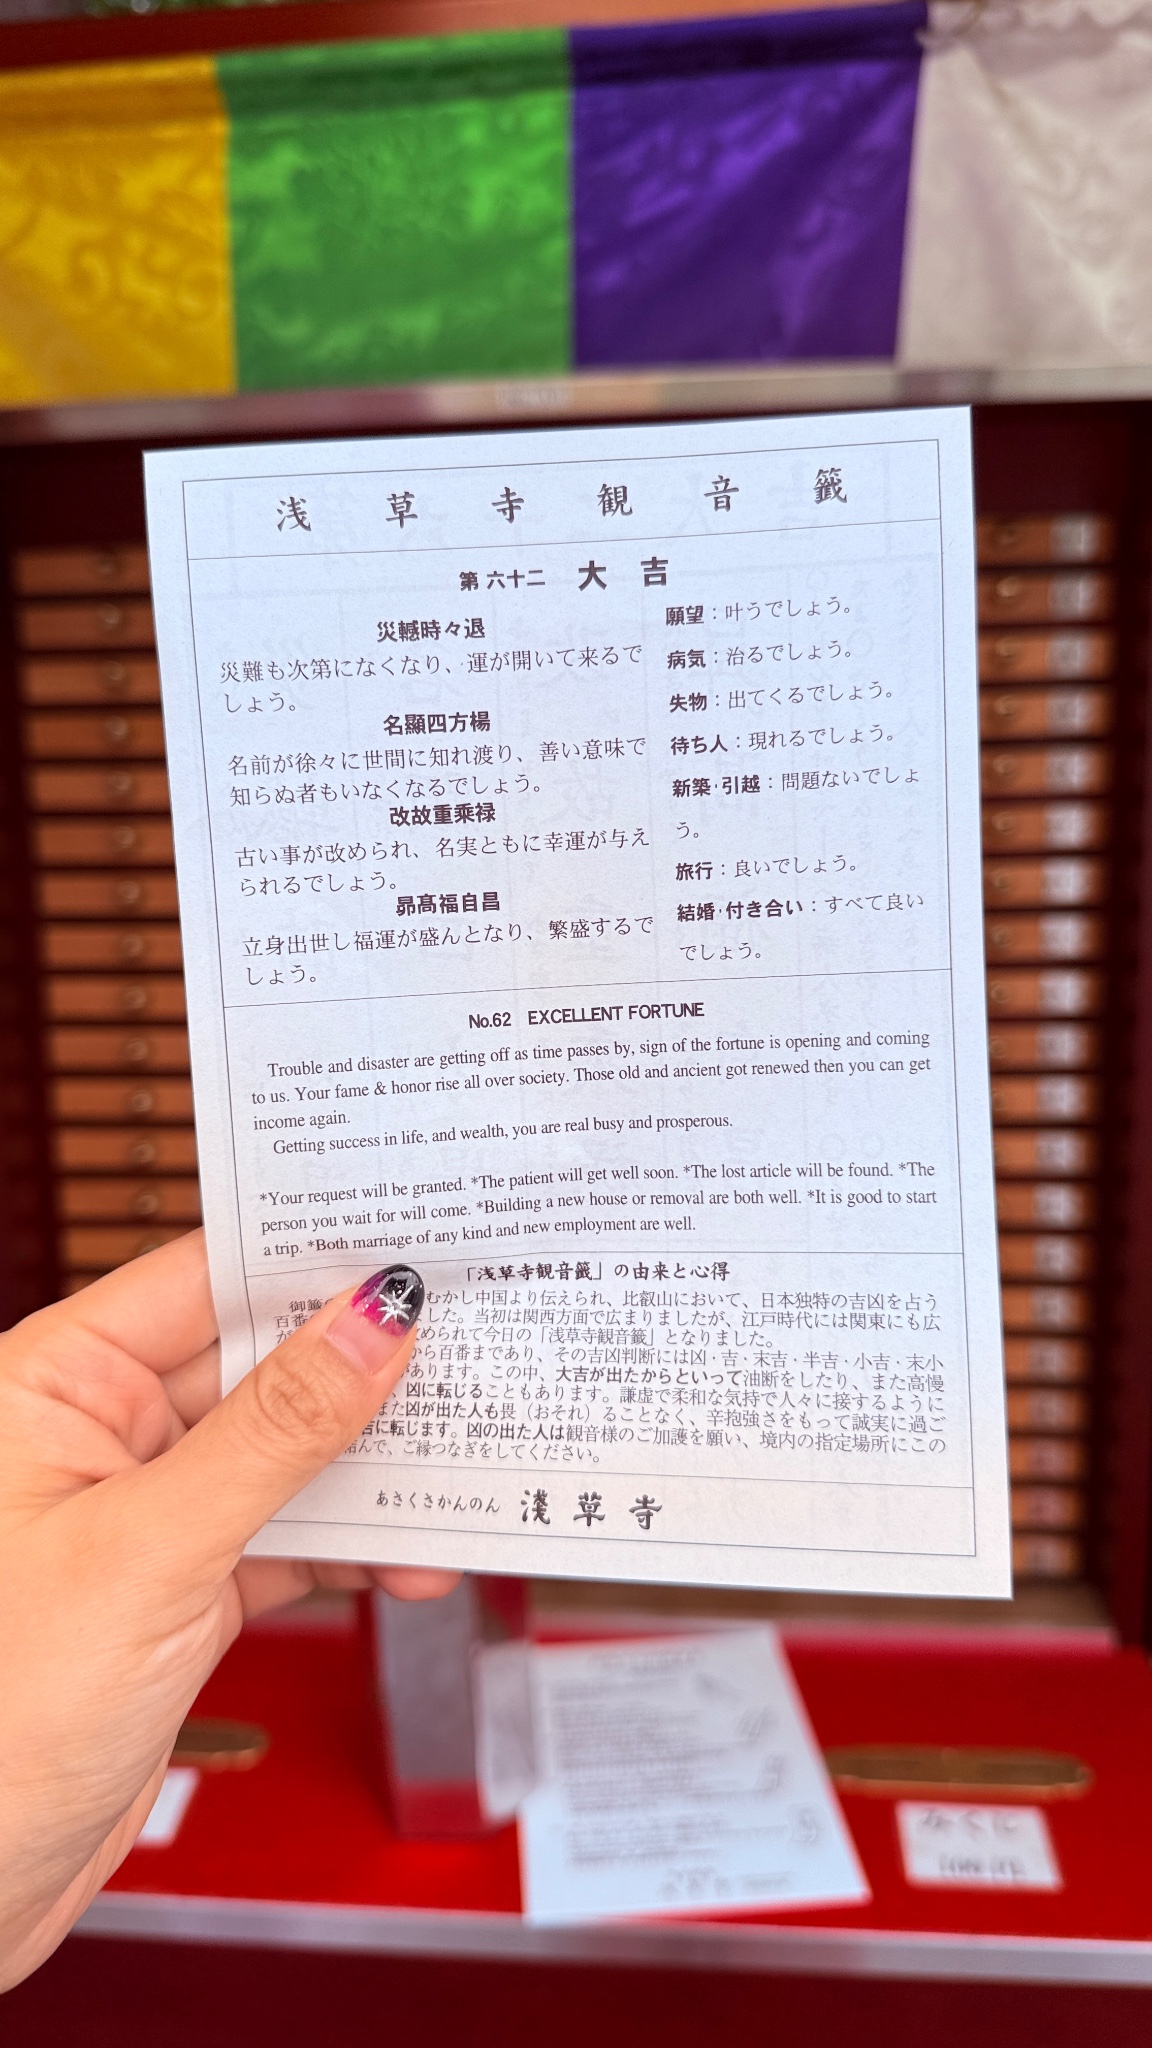 浅草寺観音籤
第六十二 大吉
災轗時々退
災難も次第になくなり、運が開いて来るで
しょう。
名顯四方楊
名前が徐々に世間に知れ渡り、善い意味で
知らぬ者もいなくなるでしょう。
改故重乘禄
古い事が改められ、名実ともに幸運が与え
られるでしょう。
昴髙福自昌
立身出世し福運が盛んとなり、繁盛するで
しょう。
願望：叶うでしょう。
病気：治るでしょう。
失物：出てくるでしょう。
待ち人：現れるでしょう。
新築・引越：問題ないでしょ
う。
旅行：良いでしょう。
結婚・付き合い：すべて良い
でしょう。
No.62 EXCELLENT FORTUNE
Trouble and disaster are getting off as time passes by, sign of the fortune is opening and coming
to us. Your fame & honor rise all over society. Those old and ancient got renewed then you can get
income again.
Getting success in life, and wealth, you are real busy and prosperous.
*Your request will be granted. *The patient will get well soon. *The lost article will be found. *The
person you wait for will come. *Building a new house or removal are both well. *It is good to start
a trip. *Both marriage of any kind and new employment are well.
「浅草寺観音籤」の由来と心得
御籤 むかし中国より伝えられ、比叡山において、日本独特の吉凶を占う
百番 した。当初は関西方面で広まりましたが、江戸時代には関東にも広
が められて今日の「浅草寺観音籤」となりました。
から百番まであり、その吉凶判断には凶・吉・末吉・半吉・小吉・末小
があります。この中、大吉が出たからといって油断をしたり、また高慢
、凶に転じることもあります。謙虚で柔和な気持で人々に接するように
また凶が出た人も畏（おそれ）ることなく、辛抱強さをもって誠実に過ご
吉に転じます。凶の出た人は観音様のご加護を願い、境内の指定場所にこの
結んで、ご縁つなぎをしてください。
あさくさかんのん 淺草寺